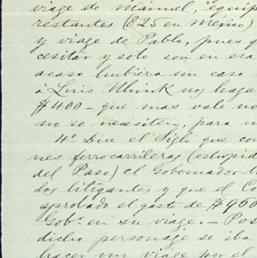 viage de Manuel, equip
restantes (825 en Mexico)
y viage de Pablo, pues
cesitar y solo son en esa
acaso hubiera un caso
á Luis haga
$400 - que mas vale no
no se necesiten, para
4º Dice el Siglo que con
nes ferrocarrileras (estupid
del Paso) el Gobernador
dos litigantes y que el Co
aprobado el gasto de $960
Gobº en su viage. - Pos
dicho personaje se iba
hacer un viage por el